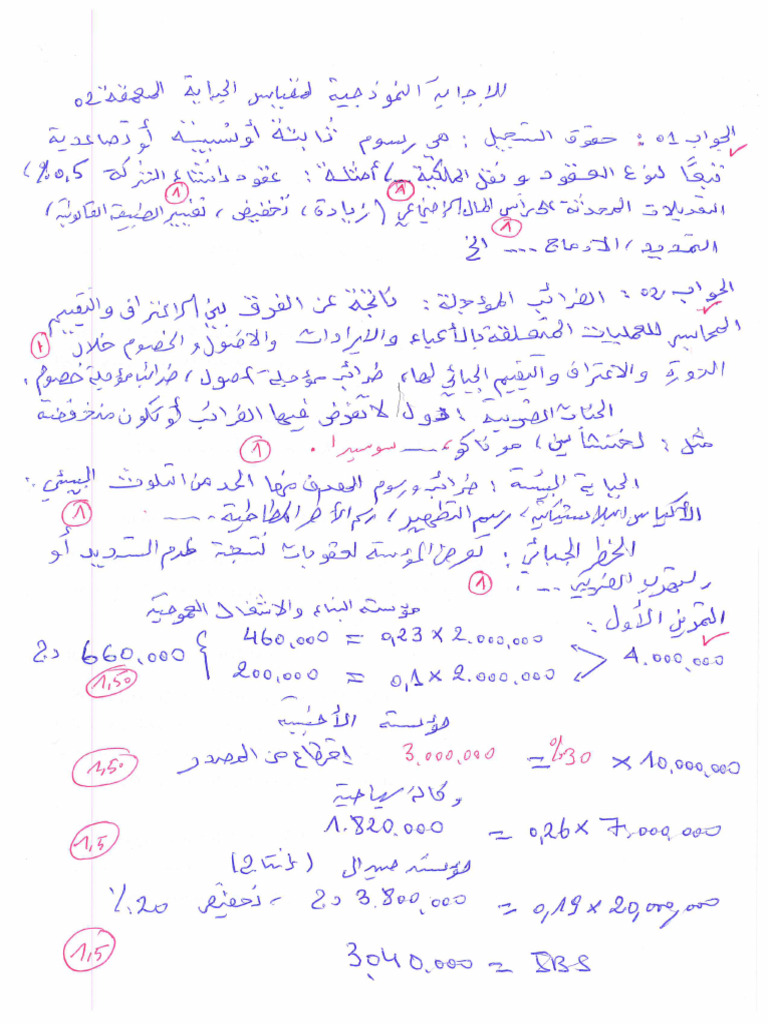 الإجابة النموذجية لمقياس الجباية المعمقة 02
الجواب 01: حقوق التسجيل: هي رسوم ثابتة أو نسبية أو تصاعدية
تبعًا لنوع العقود ونقل الملكية / أمثلة: عقود اقتناء التركة 0,5%،
1 1
التعديلات المحدثة على رأس المال الاجتماعي (زيادة، تخفيض، تغيير الطبيعة القانونية)
1
التمديد، الادماج .... الخ
الجواب 02: الضرائب المؤجلة: ناتجة عن الفرق بين الاعتراف والتقييم
المحاسبي للعمليات المتعلقة بالأعباء والإيرادات والأصول والخصوم خلال 1
الدورة والاعتراف والتقييم الجبائي لها، ضرائب مؤجلة أصول، ضرائب مؤجلة خصوم.
الجنات الضريبية: دول لا تفرض فيها الضرائب أو تكون منخفضة
مثل: لختنشتاين، موناكو، سويسرا. 1
الجباية البيئية: ضرائب ورسوم الهدف منها الحد من التلوث البيئي:
الأكياس البلاستيكية، رسم التطهير، رسم الأطر المطاطية..... 1
الخطر الجبائي: تعرض المؤسسة لعقوبات نتيجة عدم التسديد أو
التهرب الضريبي .... 1
التمرين الأول: مؤسسة البناء والاشغال العمومية
4.000.000 2.000.000 × 0,23 = 460,000 660.000 دج
2.000.000 × 0,1 = 200,000 1,50
مؤسسة الأجنبية
10,000,000 × 30% = 3.000,000 اقتطاع من المصدر 1,50
وكالة سياحية
7,000,000 × 0,26 = 1.820.000 1,5
مؤسسة صيدال (إنتاج)
20,000,000 × 0,19 = 3.800,000 دج، تخفيض 20%
IBS = 3,040.000 1,5